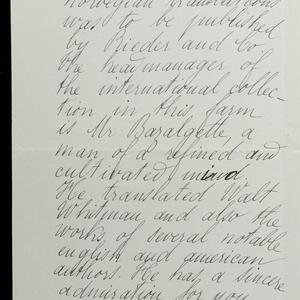 norwegian translations
was to be published
by Rieder and Co.
the headmanager of
the international collec-
tion in this farm
is Mr Bazalgette, a
man of a refined and
cultivated mind.
He translated Walt
Whitman and also the
works of several notable
english and american
authors. He has a sincere
admiration for you